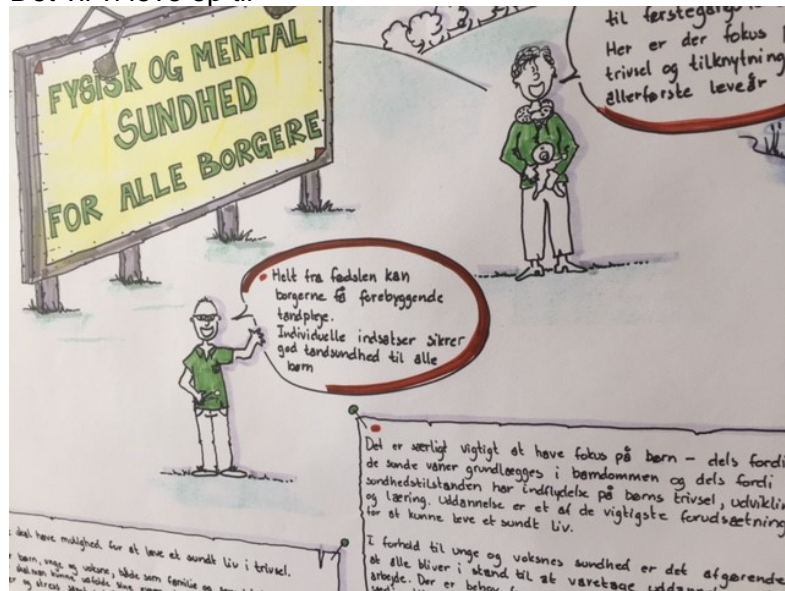 FYSISK OG MENTAL
SUNDHED
FOR ALLE BORGERE
til førstegangs
Her er der fokus
trivsel og tilknytning
allerførste leveår
Helt fra fødslen kan
borgerne få forebyggende
tandpleje.
Individuelle indsatser sikrer
god tandsundhed til alle
børn
Det er særligt vigtigt at have fokus på børn – dels fordi
de sunde vaner grundlægges i barndommen og dels fordi
sundhedstilstanden har indflydelse på børns trivsel, udvikling
og læring. Uddannelse er et af de vigtigste forudsætning
for at kunne leve et sundt liv.
I forhold til unge og voksnes sundhed er det afgørende
at alle bliver i stand til at varetage uddann
arbejde. Der er behov
skal have mulighed for at leve et sundt liv i trivsel.
børn, unge og voksne, både som familie og
skal man kunne udfolde sine
og stress